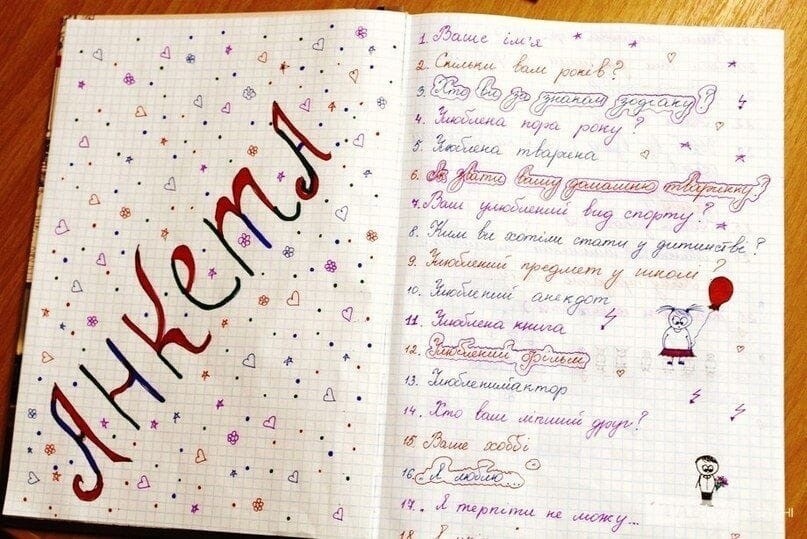 АНКЕТА
1. Ваше ім'я
2. Скільки вам років?
3. Хто ви за знаком зодіаку?
4. Улюблена пора року?
5. Улюблена тварина
6. Як звати вашу домашню тваринку?
7. Ваш улюблений вид спорту?
8. Ким ви хотіли стати у дитинстві?
9. Улюблений предмет у школі?
10. Улюблений анекдот
11. Улюблена книга
12. Улюблений фільм
13. Улюблений актор
14. Хто ваш ліпший друг?
15. Ваше хоббі
16. Я люблю...
17. Я терпіти не можу...
18. Я